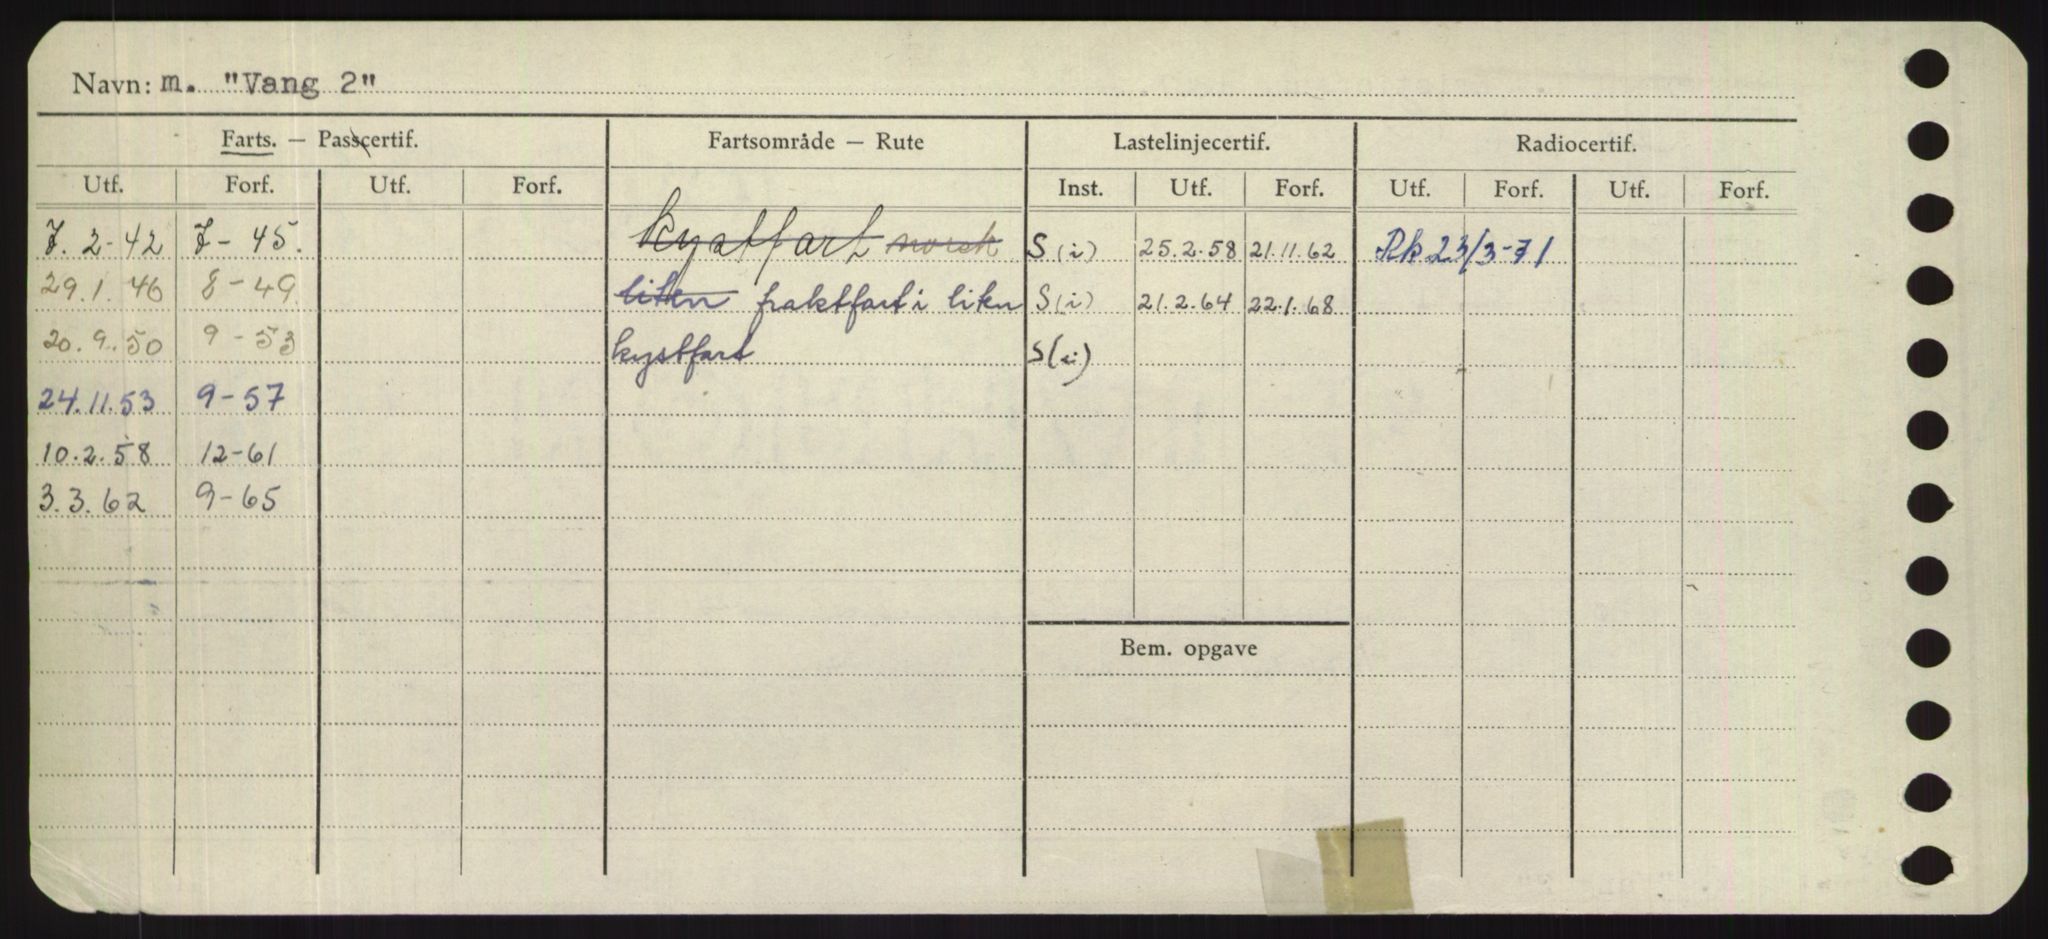 Navn: m. "Vang 2"
Farts. — Passcertif. Fartsområde — Rute Lastelinjecertif. Radiocertif.
Utf. Forf. Utf. Forf. Inst. Utf. Forf. Utf. Forf. Utf. Forf.
7. 2-42 7-45. kystfart norsk S(i) 25.2.58 21.11.62 Rk 23/3-71
29.1.46 8-49 liten fraktfart i liten S(i) 21.2.64 22.1.68
20.9.50 9-53 kystfart S(i)
24.11.53 9-57
10.2.58 12-61
3.3.62 9-65
Bem. opgave